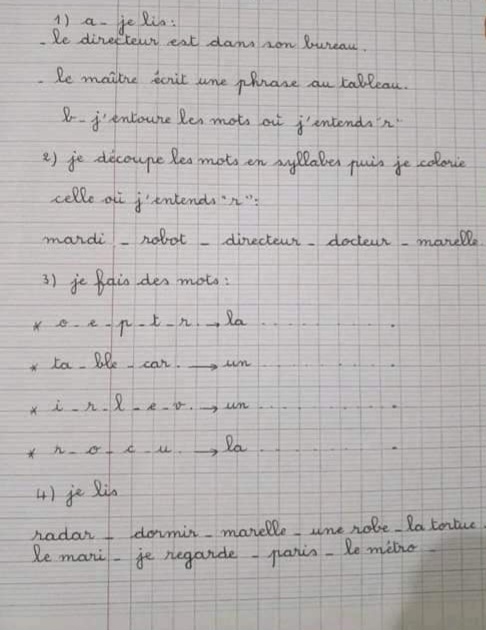 1) a - je lis :
- le directeur est dans son bureau.
- le maître écrit une phrase au tableau.
b - j'entoure les mots où j'entends "r"
2) je découpe les mots en syllabes puis je colorie
celle où j'entends "r" :
mardi - robot - directeur - docteur - marelle.
3) je fais des mots :
* o - e - p - t - r. → la ............ .
* ta - ble - car. → un ............ .
* i - r - l - e - v. → un ............ .
* r - o - c - u. → la ............ .
4) je lis
radar - dormir - marelle - une robe - la tortue.
le mari - je regarde - paris - le métro -